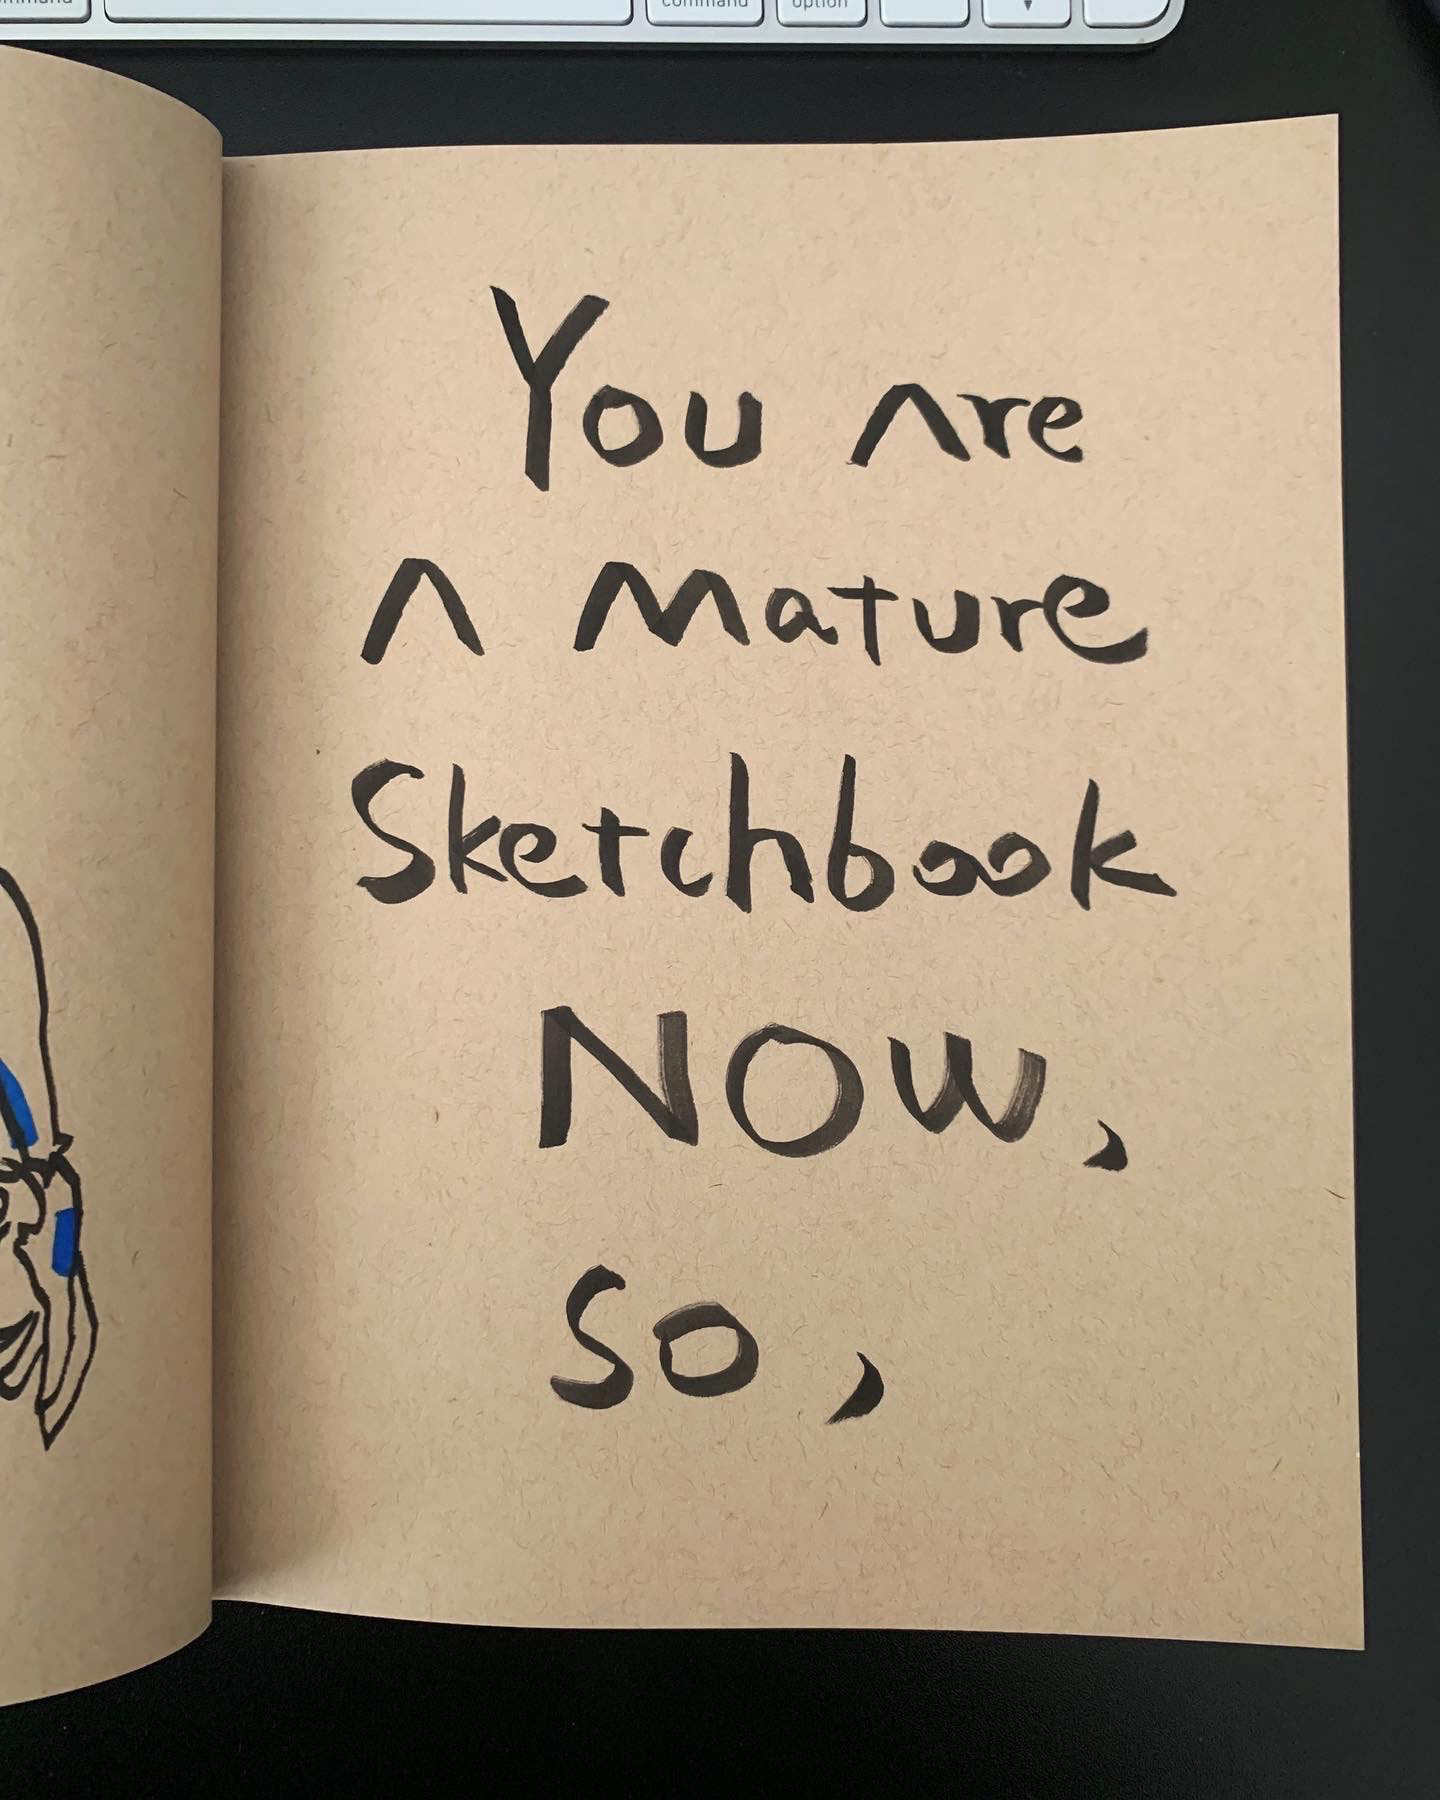 command
option
You are
A mature
Sketchbook
NOW,
so,